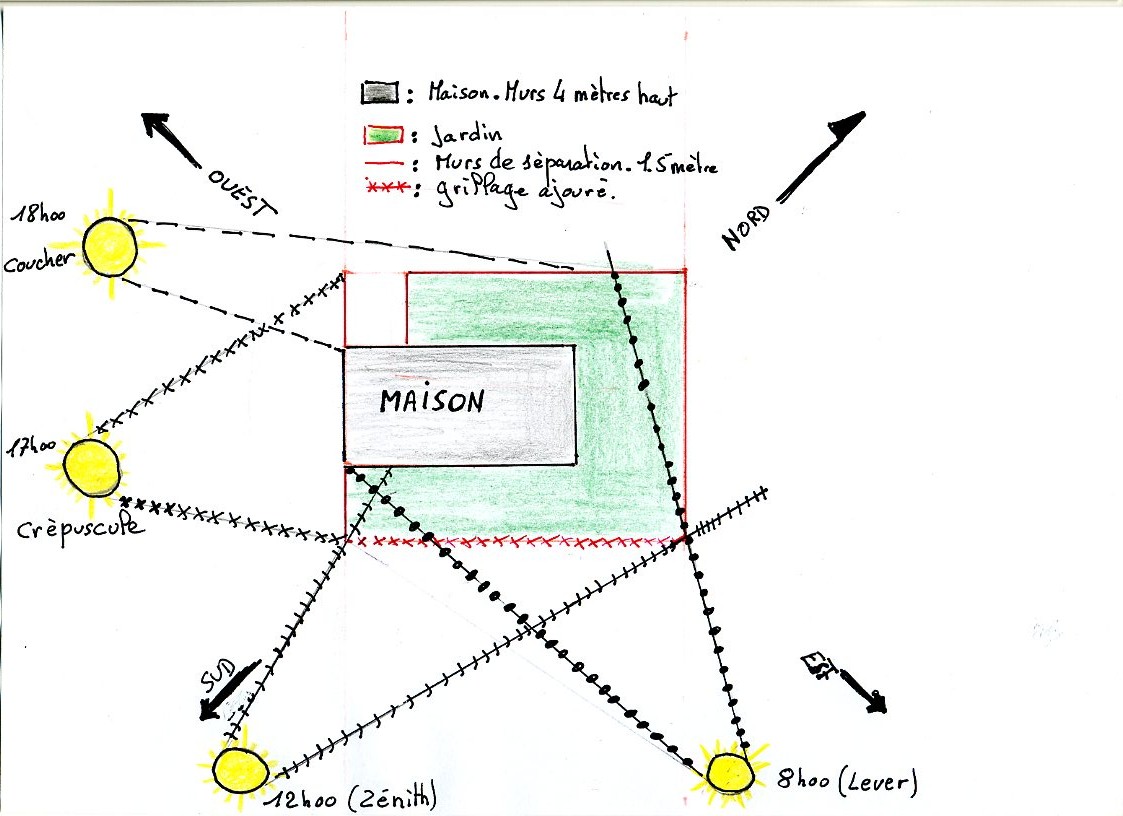 : Maison. Murs 4 mètres haut
: Jardin
: Murs de sèparation. 1.5 mètre
: grillage ajourè.
OUËST
NORD
18h00
Coucher
MAiSON
17h00
Crèpuscule
SUD
EST
12h00 (Zénith)
8h00 (Lever)